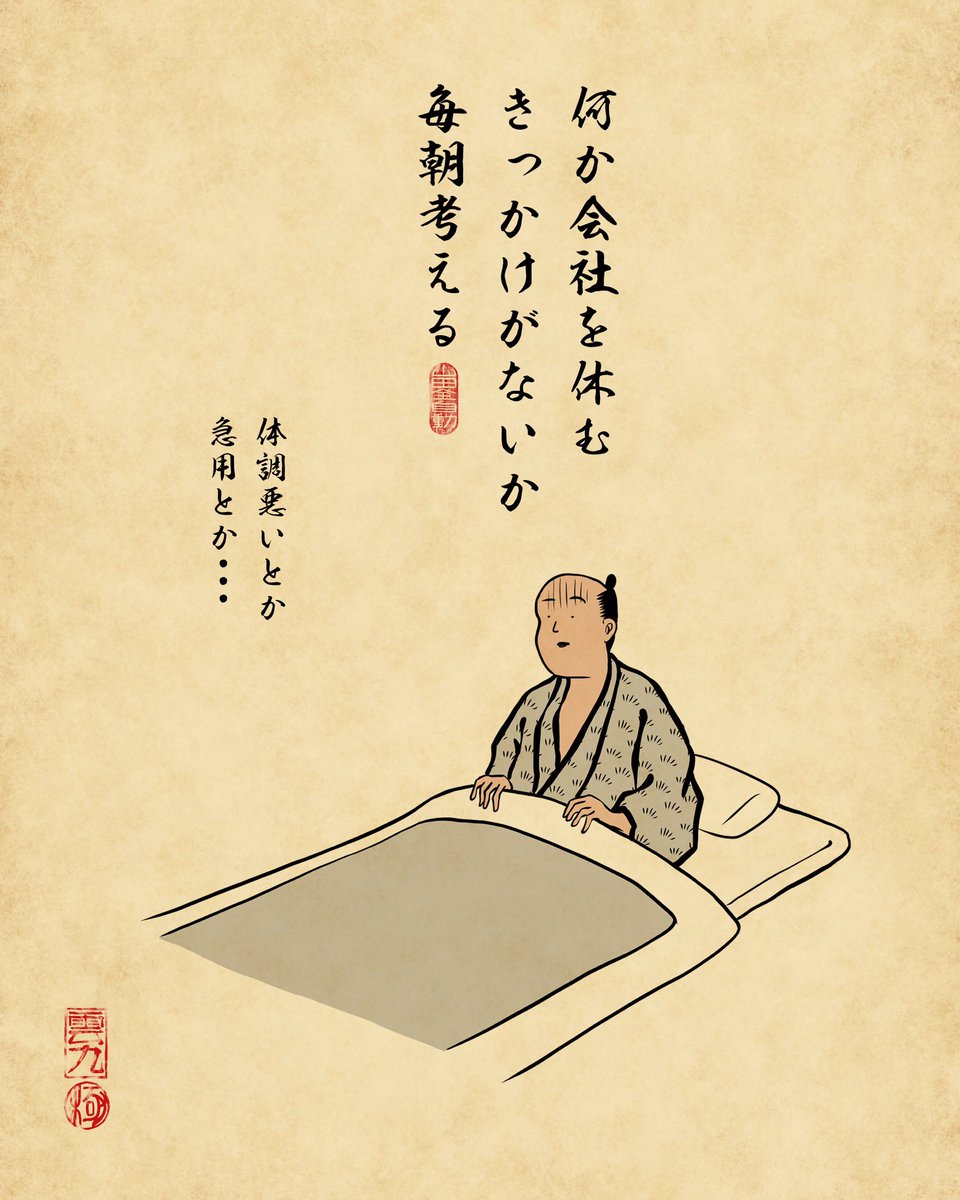 何か会社を休む
きっかけがないか
毎朝考える
体調悪いとか
急用とか・・・